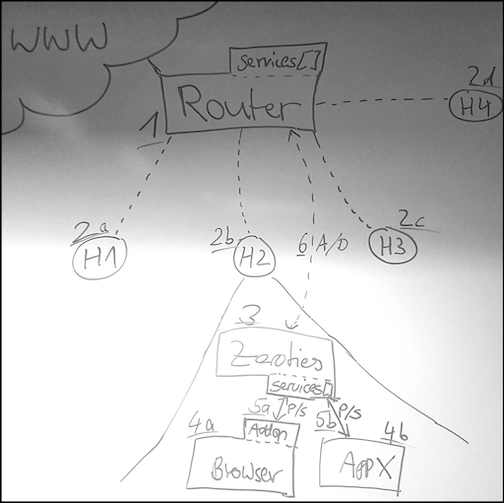 WWW
services[]
Router
1
2d
H4
2a
H1
2b
H2
6 A/D
2c
H3
3
Zeroties
services[]
5a P/S
5b P/S
4a
Addon
Browser
4b
App X